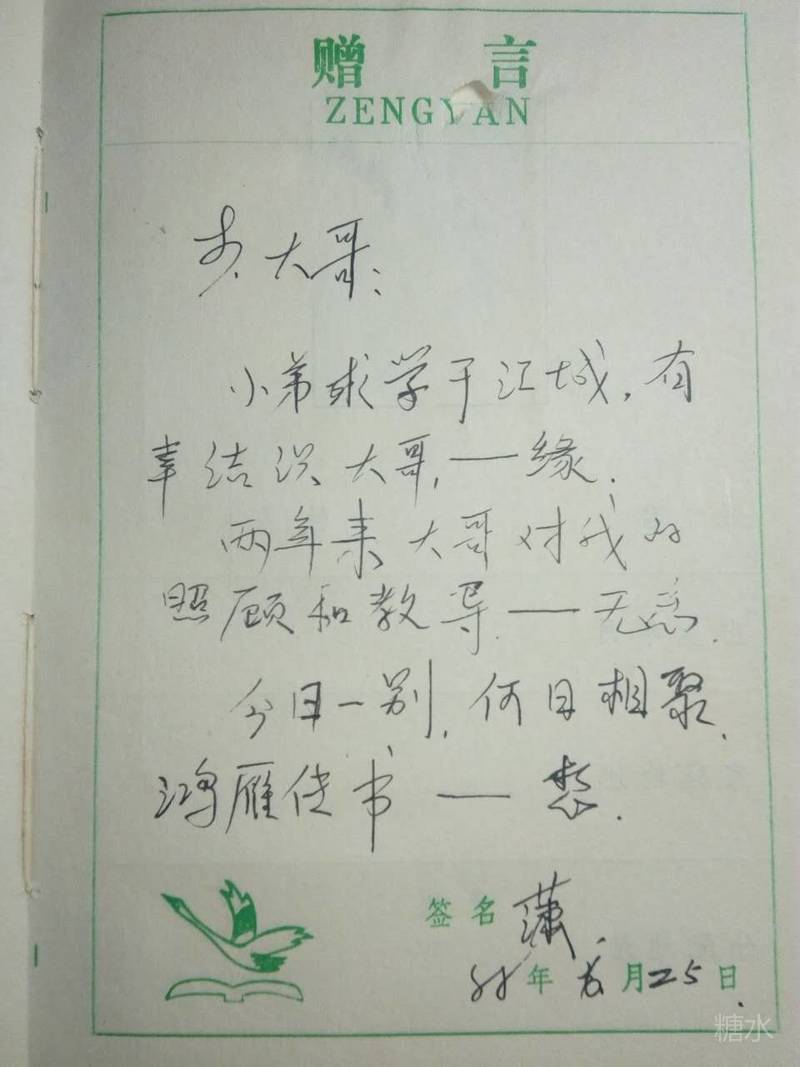 赠言
ZENGYAN
大哥:
小弟求学于江城,有
幸结识大哥,——缘.
两年来大哥对我的
照顾和教导——无悉.
今日一别,何日相聚,
鸿雁传书——愁.
签名 潇
88年 月25日.
糖水